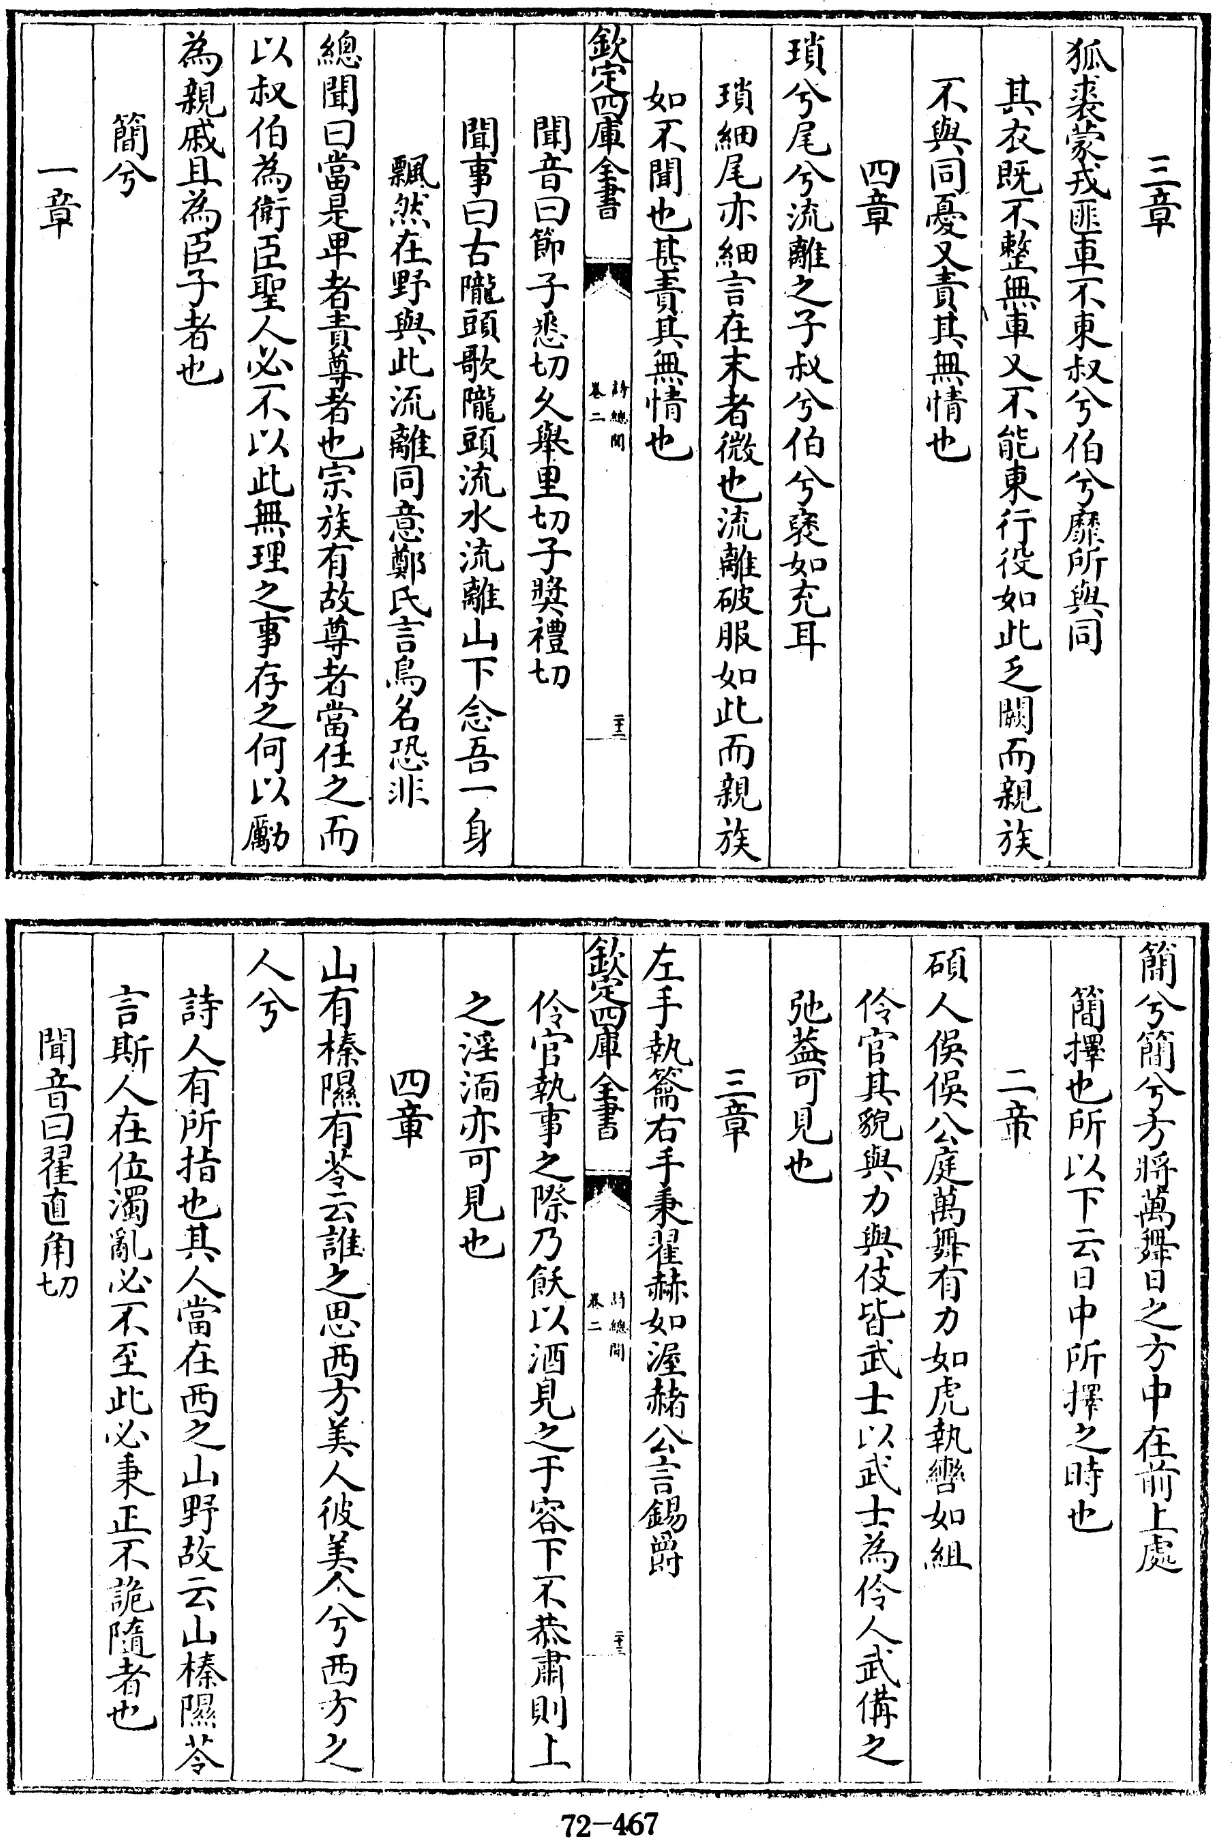 三章
狐裘蒙戎匪車不東叔兮伯兮靡所與同
其衣既不整無車又不能東行役如此乏闕而親族
不與同憂又責其無情也
四章
瑣兮尾兮流離之子叔兮伯兮褎如充耳
瑣細尾亦細言在末者微也流離破服如此而親族
如不聞也甚責其無情也
欽定四庫全書
詩總聞
卷二
二十二
聞音曰節子悉切久舉里切子奬禮切
聞事曰古隴頭歌隴頭流水流離山下念吾一身
飄然在野與此流離同意鄭氏言鳥名恐非
總聞曰當是卑者責尊者也宗族有故尊者當任之而
以叔伯為衛臣聖人必不以此無理之事存之何以勵
為親戚且為臣子者也
簡兮
一章
簡兮簡兮方將萬舞日之方中在前上處
簡擇也所以下云日中所擇之時也
二章
碩人俁俁公庭萬舞有力如虎執轡如組
伶官其貌與力與伎皆武士以武士為伶人武備之
弛蓋可見也
三章
左手執籥右手秉翟赫如渥赭公言錫爵
欽定四庫全書
詩總聞
卷二
二十三
伶官執事之際乃飫以酒見之于容下不恭肅則上
之淫湎亦可見也
四章
山有榛隰有苓云誰之思西方美人彼美人兮西方之
人兮
詩人有所指也其人當在西之山野故云山榛隰苓
言斯人在位濁亂必不至此必秉正不詭隨者也
聞音曰翟直角切
72-467